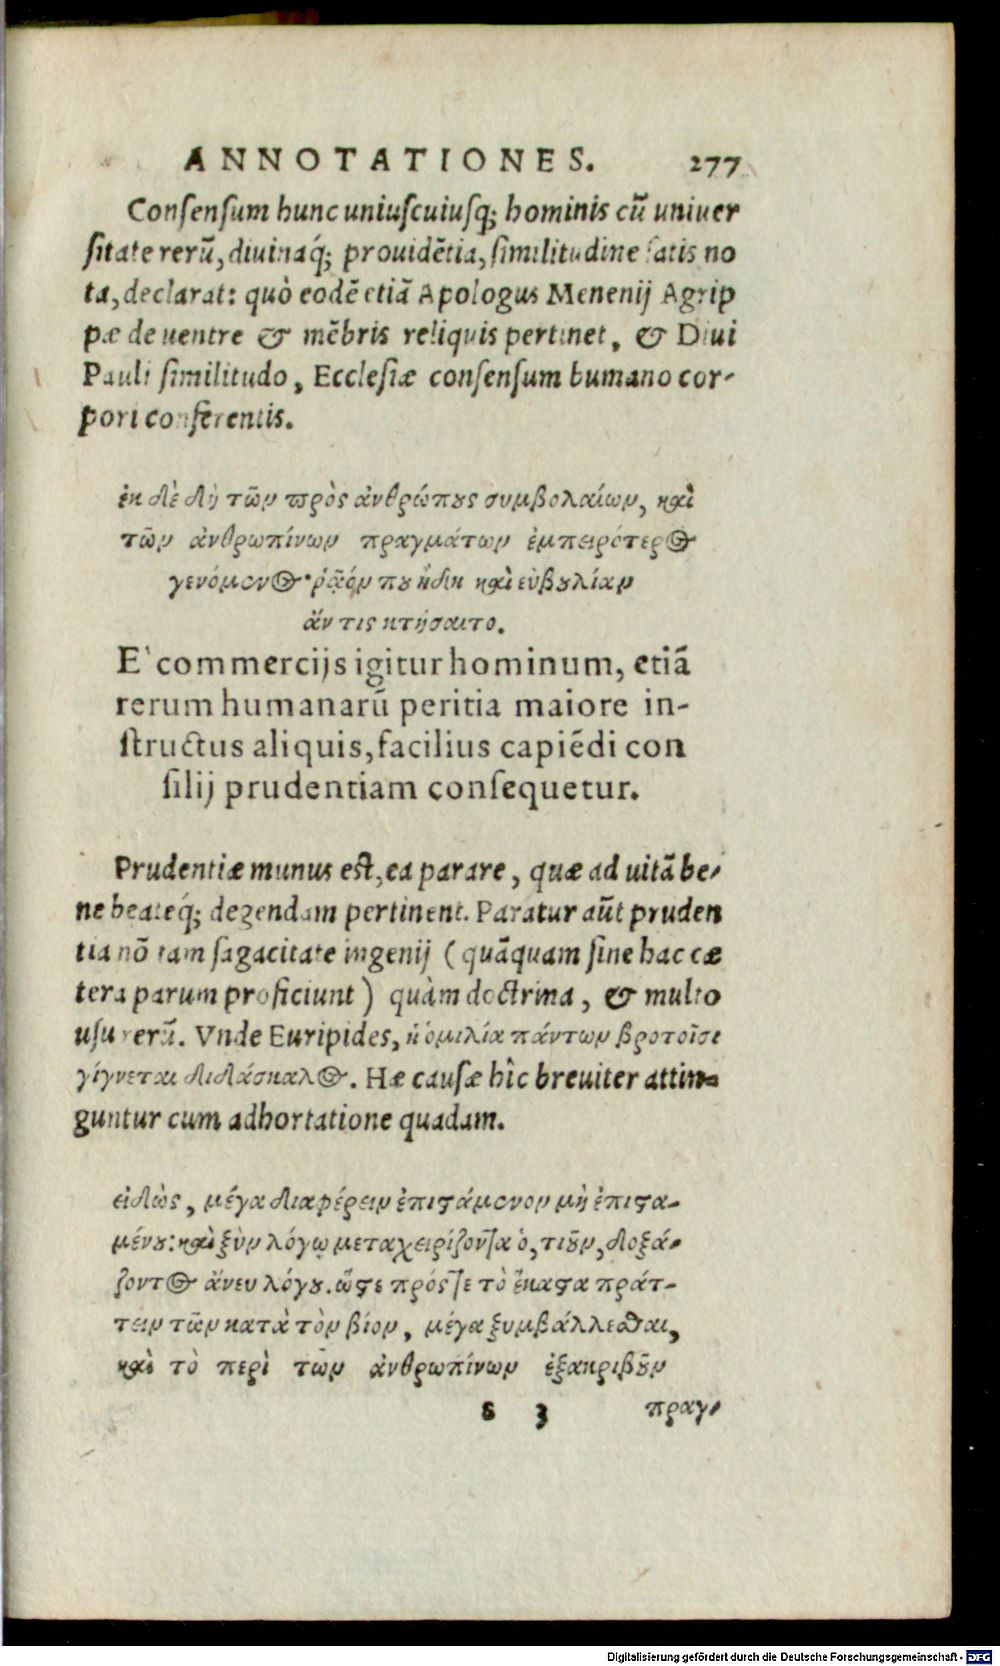 ANNOTATIONES. 277
Conſenſum hunc uniuſcuiuſq; hominis cũ uniuer
ſitate rerũ, diuinaq́; prouidẽtia, ſimilitudine ſatis no
ta, declarat: quò eodẽ etiã Apologus Menenij Agrip
pæ de uentre & mẽbris reliquis pertinet, & Diui
Pauli ſimilitudo, Eccleſiæ conſenſum humano cor-
pori conferentis.
ἐκ δὲ δὴ τῶν πρὸς ἀνθρώπȣς συμβολαίων, καὶ
τῶν ἀνθρωπίνων πραγμάτων ἐμπειρότερος
γενόμενος· ῥᾷόν πȣ ἤδη καὶ εὐβȣλίαν
ἄν τις κτήσαιτο.
E` commercijs igitur hominum, etiã
rerum humanarũ peritia maiore in-
ſtructus aliquis, facilius capiẽdi con
ſilij prudentiam conſequetur.
Prudentiæ munus eſt, ea parare, quæ ad uitã be-
ne beateq́; degendam pertinent. Paratur aũt pruden
tia nõ tam ſagacitate ingenij (quãquam ſine hac cæ
tera parum proficiunt) quàm doctrina, & multo
uſu rerũ. Vnde Euripides, ἡ ὁμιλία πάντων βροτοῖσι
γίγνεται διδάσκαλος. Hæ cauſæ hîc breuiter attin-
guntur cum adhortatione quadam.
εἰδὼς, μέγα διαφέρειν ἐπιϛάμενον μὴ ἐπιϛα-
μένȣ: καὶ ξὺν λόγῳ μεταχειρίζοντα ὁ, τιȣ͂ν, δοξά-
ζοντος ἄνευ λόγȣ. ὥϛε πρός τε τὸ ἕκαϛα πράτ-
τειν τῶν κατὰ τὸν βίον, μέγα ξυμβάλλεσθαι,
καὶ τὸ περὶ τῶν ἀνθρωπίνων ἐξακριβȣ͂ν
s 3 πραγ-
Digitalisierung gefördert durch die Deutsche Forschungsgemeinschaft - DFG